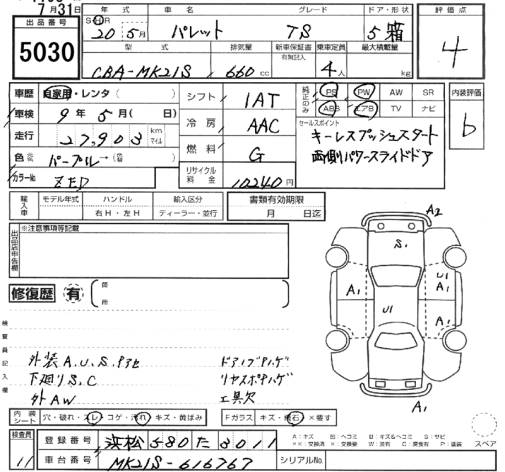 7月31日
出品番号
5030
年式 車名 グレード ドア・形状 評価点
S・H・R 20年 5月 パレット TS 5 箱
4
型式 排気量 新車保証書 有無(記入) 乗車定員 最大積載量
CBA-MK21S 660cc 4人 kg
車歴 自家用・レンタ( )
車検 9年 5月( 日)
走行 27,903 km マイル
色 パープル→
カラーNo ZED
シフト 1AT
冷房 AAC
燃料 G
リサイクル料金 10240円
純正のみ PS PW AW SR
ABS エアB TV ナビ
内装評価
b
セールスポイント
キーレスプッシュスタート
両側パワースライドドア
輸入車 モデル年式 ハンドル 輸入区分
右H・左H ディーラー・並行
書類有効期限
月 日迄
出品店申告欄
※注意事項等記載
修復歴 有
検査員記入欄
外装A.U.S.
下廻りS.C
外AW
工具欠
A2
S1
A1
U1
A1
U1
A1
A1
内装シート 穴・破れ・スレ・コゲ・汚れ・キズ・黄ばみ
Fガラス キズ・飛石・×要す
スペア
検査員
11
登録番号 浜松580た8011
車台番号 MK21S-616767
シリアルNo.